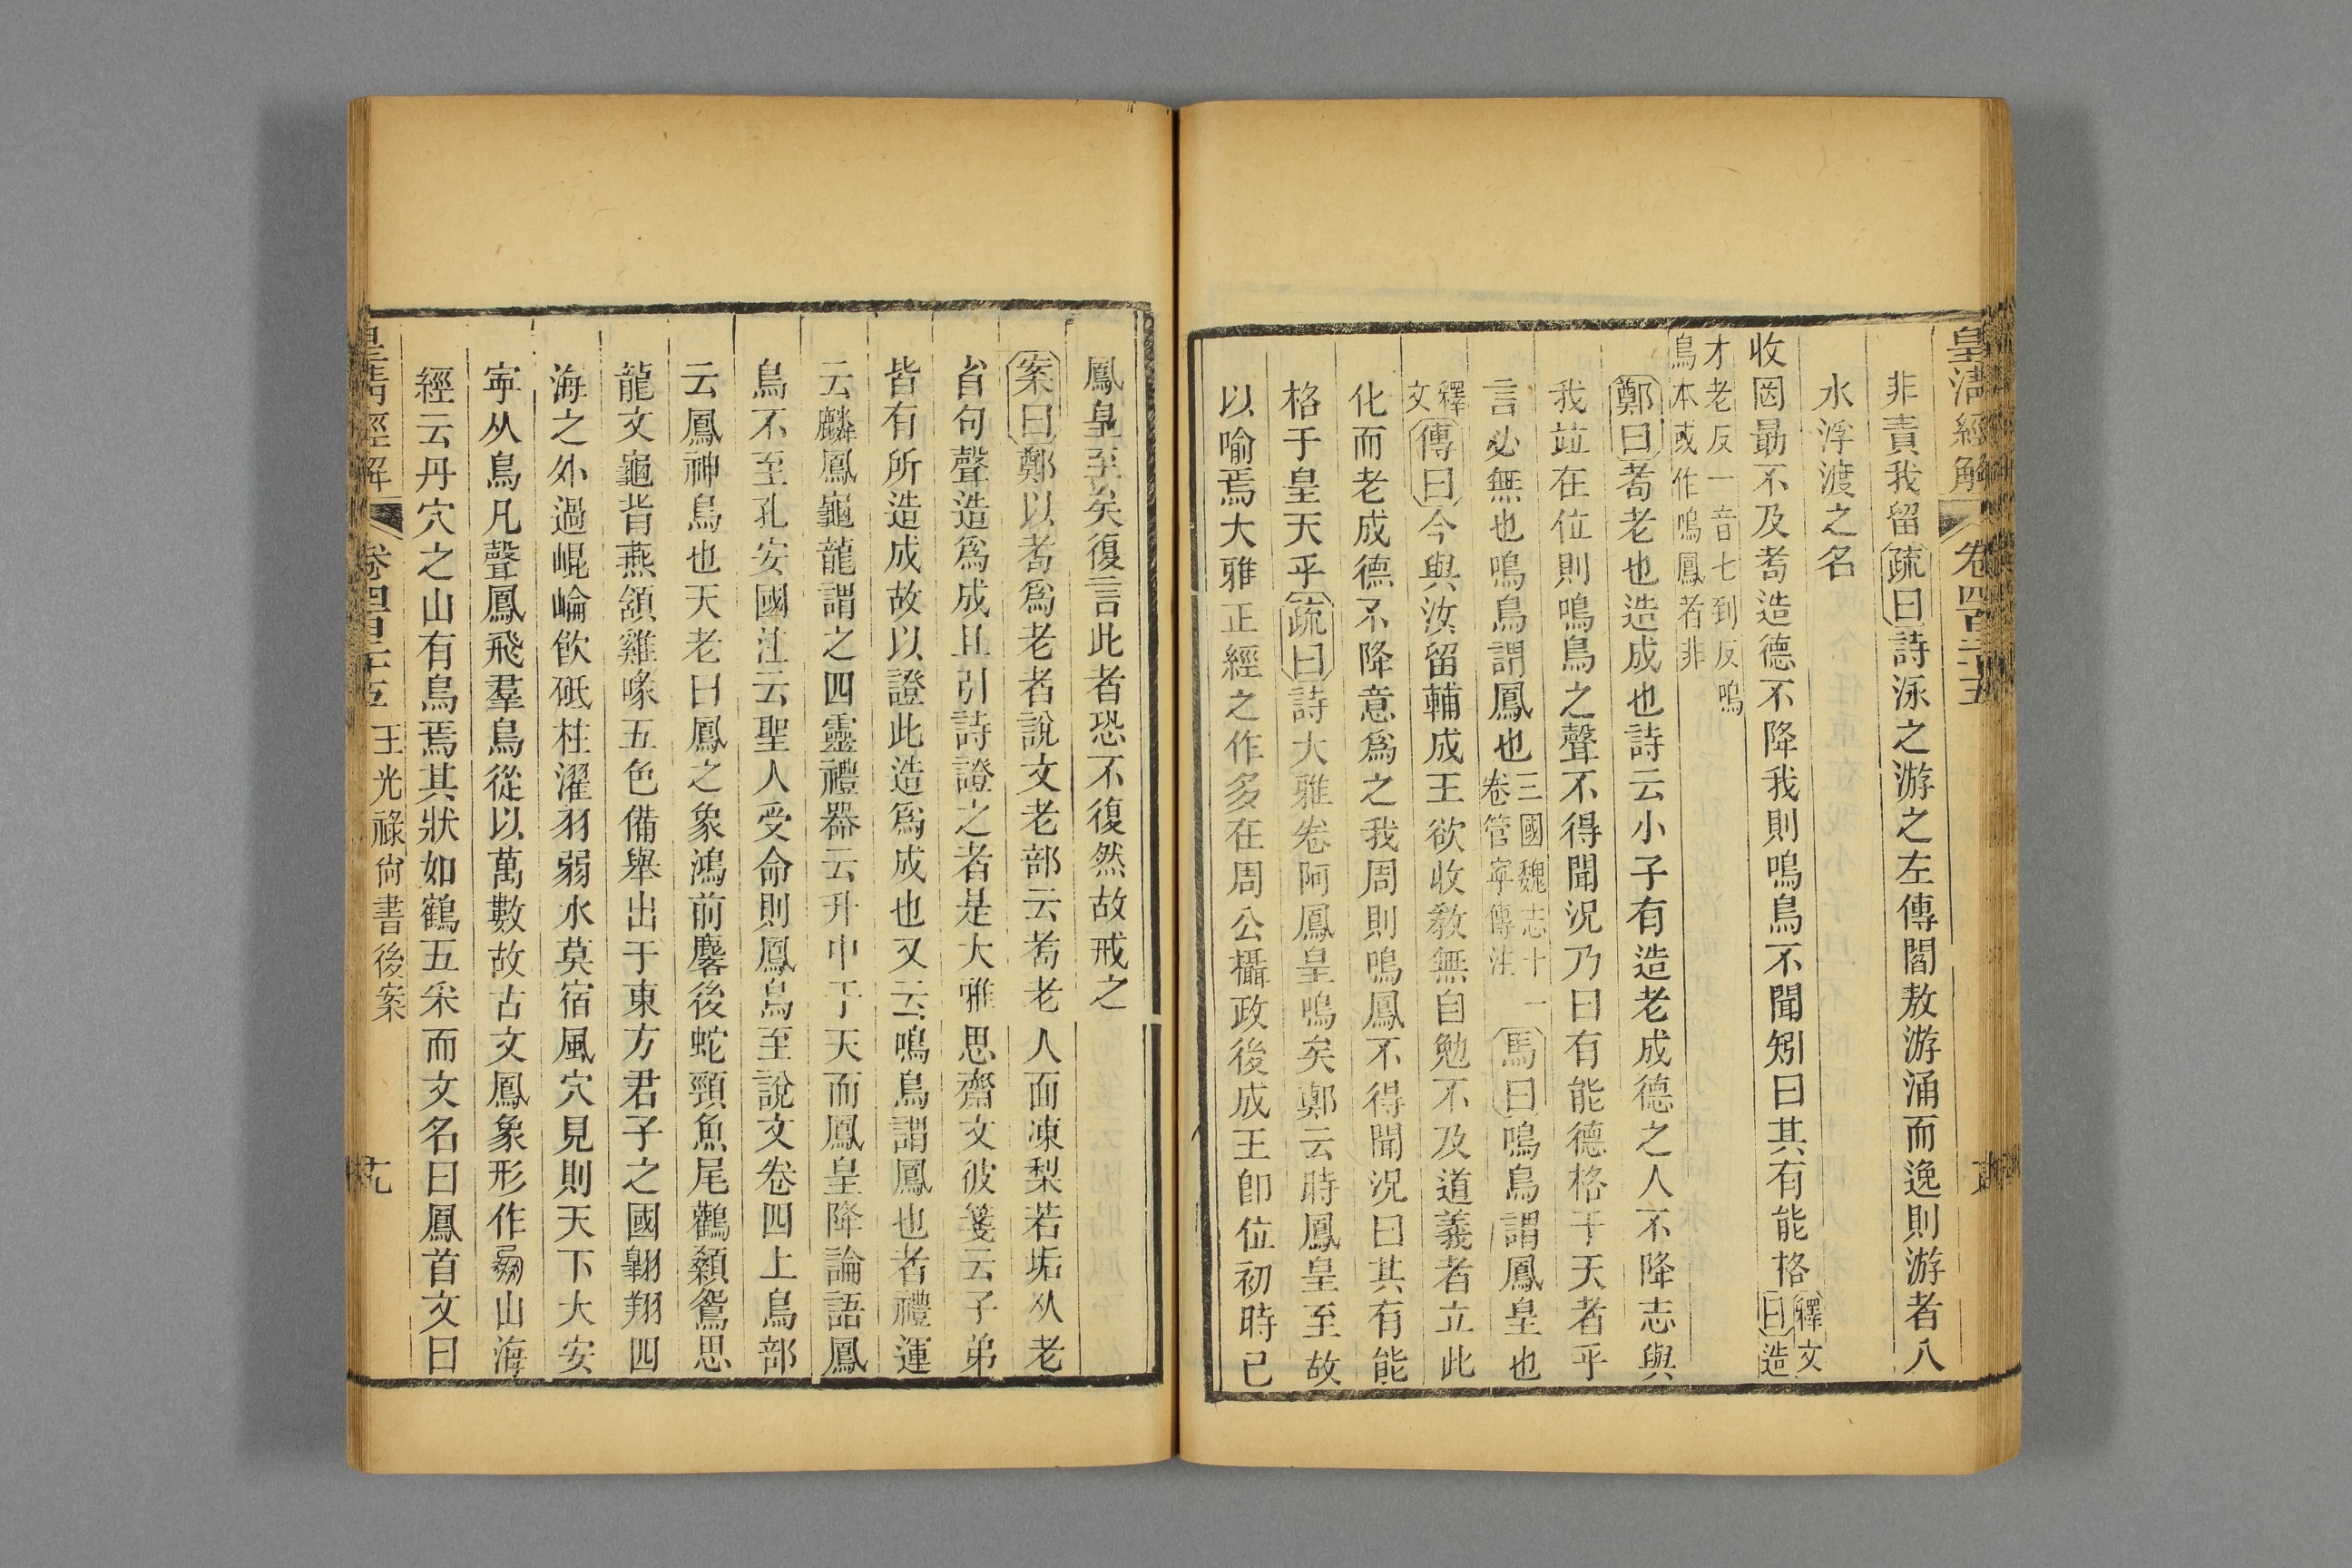 皇淸經解 卷四百二十五
非責我留疏曰詩泳之游之左傳閻敖游涌而逸則游者入
水浮渡之名
收罔勗不及耇造德不降我則鳴鳥不聞矧曰其有能格釋文曰造
才老反一音七到反鳴鳥本或作鳴鳳者非
鄭曰耇老也造成也詩云小子有造老成德之人不降志與
我竝在位則鳴鳥之聲不得聞況乃曰有能德格于天者乎
言必無也鳴鳥謂鳳也三國魏志十一卷管寧傳注馬曰鳴鳥謂鳳皇也
釋文傳曰今與汝留輔成王欲收敎無自勉不及道義者立此
化而老成德不降意爲之我周則鳴鳳不得聞況曰其有能
格于皇天乎疏曰詩大雅卷阿鳳皇鳴矣鄭云時鳳皇至故
以喻焉大雅正經之作多在周公攝政後成王卽位初時已
鳳皇至矣復言此者恐不復然故戒之
案曰鄭以耇爲老者說文老部云耇老人面凍梨若垢从老
省句聲造爲成且引詩證之者是大雅思齋文彼箋云子弟
皆有所造成故以證此造爲成也又云鳴鳥謂鳳也者禮運
云麟鳳龜龍謂之四靈禮器云升中于天而鳳皇降論語鳳
鳥不至孔安國注云聖人受命則鳳鳥至說文卷四上鳥部
云鳳神鳥也天老曰鳳之象鴻前麐後蛇頸魚尾鸛顙鴛思
龍文龜背燕頷雞喙五色備舉出于東方君子之國翺翔四
海之外過崐崘飮砥柱濯羽弱水莫宿風穴見則天下大安
寕从鳥凡聲鳳飛羣鳥從以萬數故古文鳳象形作山海
經云丹穴之山有鳥焉其狀如鶴五采而文名曰鳳首文曰
皇淸經解 卷四百二十五 王光祿尙書後案 十九